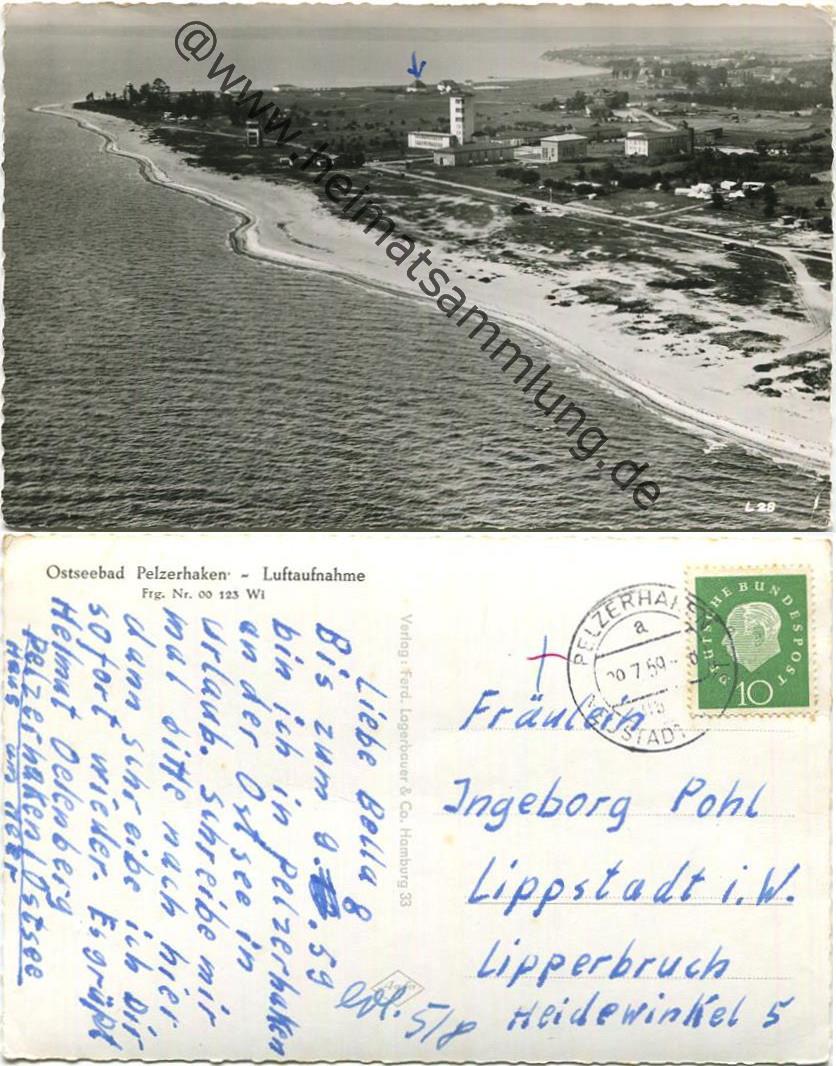 @www.heimatsammlung.de
L 28
Ostseebad Pelzerhaken - Luftaufnahme
Frg. Nr. 00 123 Wi
Liebe Bella
Bis zum 9. 8. 59
bin ich in Pelzerhaken
an der Ostsee in
Urlaub. Schreibe mir
mal bitte nach hier
dann schreibe ich Dir
sofort wieder. Es grüßt
Helmut Oelenberg
Pelzerhaken/Ostsee
Haus am Meer
Verlag: Ferd. Lagerbauer & Co. Hamburg 33
Agfa
5/8
PELZERHAKEN
a
20.7.59
NEUSTADT
DEUTSCHE BUNDESPOST
10
Fräulein
Ingeborg Pohl
Lippstadt i.W.
Lipperbruch
Heidewinkel 5